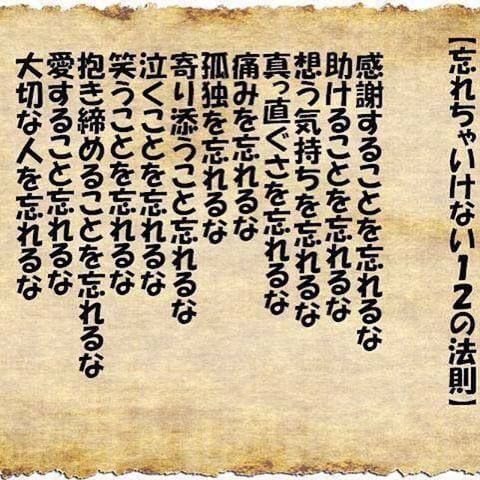 【忘れちゃいけない12の法則】
感謝することを忘れるな
助けることを忘れるな
想う気持ちを忘れるな
真っ直ぐさを忘れるな
痛みを忘れるな
孤独を忘れるな
寄り添うこと忘れるな
泣くことを忘れるな
笑うことを忘れるな
抱き締めることを忘れるな
愛すること忘れるな
大切な人を忘れるな